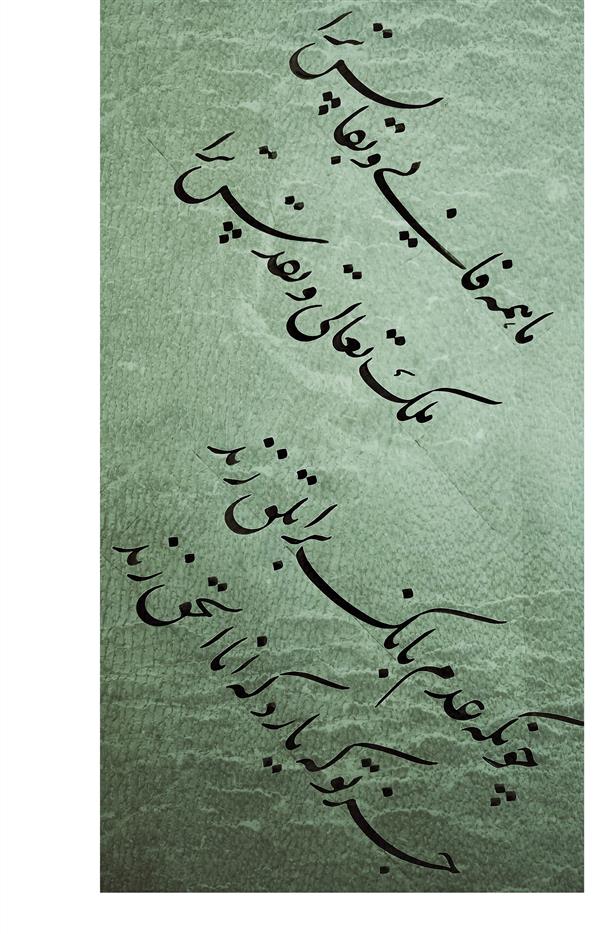 ما همه فانی و بقا بس ترا
ملک تعالی و تقدس ترا
چونکه عدم بانگ بر ابلق زند
جز تو که یارد که انا الحق زند